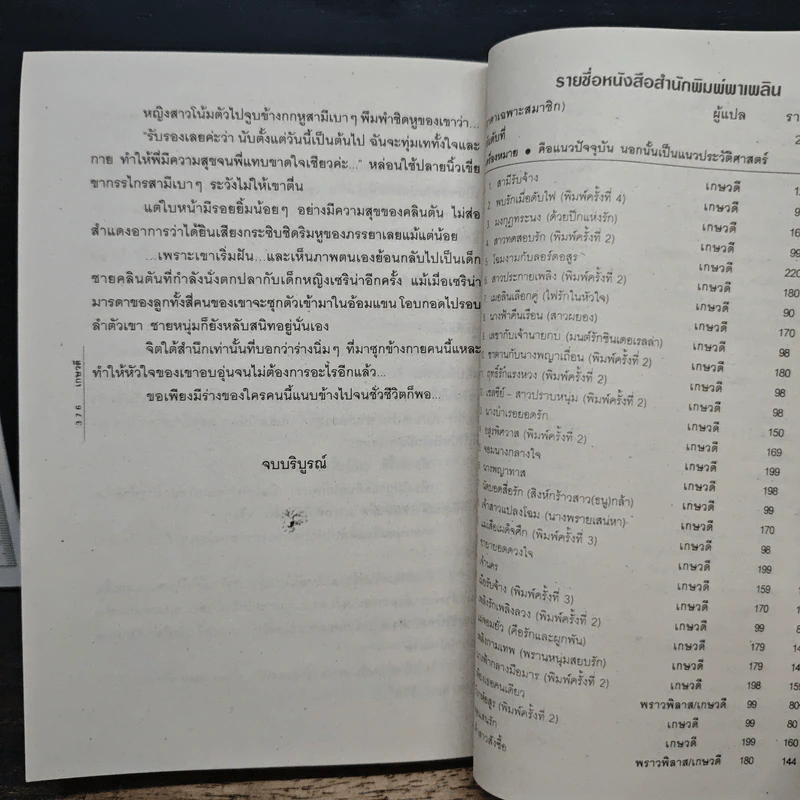 หญิงสาวโน้มตัวไปจูบข้างกกหูสามีเบาๆ พึมพำชิดหูของเขาว่า...
"รับรองเลยค่ะว่า นับตั้งแต่วันนี้เป็นต้นไป ฉันจะทุ่มเททั้งใจและ
กาย ทำให้พี่มีความสุขจนพี่แทบขาดใจเชียวค่ะ..." หล่อนใช้ปลายนิ้วเขี่ย
ขากรรไกรสามีเบาๆ ระวังไม่ให้เขาตื่น
แต่ใบหน้ามีรอยยิ้มน้อยๆ อย่างมีความสุขของคลินตัน ไม่ส่อ
สำแดงอาการว่าได้ยินเสียงกระซิบชิดริมหูของภรรยาเลยแม้แต่น้อย
...เพราะเขาเริ่มฝัน...และเห็นภาพตนเองย้อนกลับไปเป็นเด็ก
ชายคลินตันที่กำลังนั่งตกปลากับเด็กหญิงเซริน่าอีกครั้ง แม้เมื่อเซริน่า
มารดาของลูกทั้งสี่คนของเขาจะซุกตัวเข้ามาในอ้อมแขน โอบกอดไปรอบ
ลำตัวเขา ชายหนุ่มก็ยังหลับสนิทอยู่นั่นเอง
จิตใต้สำนึกเท่านั้นที่บอกว่าร่างนิ่มๆ ที่มาซุกข้างกายคนนี้แหละ
ทำให้หัวใจของเขาอบอุ่นจนไม่ต้องการอะไรอีกแล้ว...
ขอเพียงมีร่างของใครคนนี้แนบข้างไปจนชั่วชีวิตก็พอ...
จบบริบูรณ์
376 เกษวดี
รายชื่อหนังสือสำนักพิมพ์พาเพลิน
เฉพาะสมาชิก) ผู้แปล
● คือแนวปัจจุบัน นอกนั้นเป็นแนวประวัติศาสตร์
1. สามีรับจ้าง เกษวดี
2. พบรักเมื่อดับไฟ (พิมพ์ครั้งที่ 4) เกษวดี
3. มงกุฎทระนง (ด้วยปีกแห่งรัก) เกษวดี
4. สาวทดสอบรัก (พิมพ์ครั้งที่ 2) เกษวดี
5. โฉมงามกับลอร์ดอสูร เกษวดี
สาวประกายเพลิง (พิมพ์ครั้งที่ 2) เกษวดี 220
เมอลินเลือกคู่ (ไฟรักในหัวใจ) เกษวดี 180
นางฟ้าคืนเรือน (สาวผยอง) เกษวดี 90
เลขากับเจ้านายกบ (มนต์รักซินเดอเรลล่า) เกษวดี 170
ซาตานกับนางพญาเถื่อน (พิมพ์ครั้งที่ 2) เกษวดี 98
ฤทธิ์รักแรงหวง (พิมพ์ครั้งที่ 2) เกษวดี 180
เชลซีย์ - สาวปราบหนุ่ม (พิมพ์ครั้งที่ 2) เกษวดี 98
นางบำเรอยอดรัก เกษวดี 98
อสูรพิศวาส (พิมพ์ครั้งที่ 2) เกษวดี 150
จอมนางกลางใจ เกษวดี 169
นางพญาทาส เกษวดี 199
(สิงห์กร้าวสาว(ธนู)กล้า) เกษวดี 198
สาวแปลงโฉม (นางพรายเสน่หา) เกษวดี 99
(พิมพ์ครั้งที่ 3) เกษวดี 170
ยอดดวงใจ เกษวดี 98
เกษวดี 199
รับจ้าง (พิมพ์ครั้งที่ 3) เกษวดี 159
เพลิงรักเพลิงลวง (พิมพ์ครั้งที่ 2) เกษวดี 170
(คือรักและผูกพัน) เกษวดี 99
เพลิงกามเทพ (พรานหนุ่มสยบรัก) เกษวดี 179
กลางมือมาร (พิมพ์ครั้งที่ 2) เกษวดี 179
เธอคนเดียว เกษวดี 198
(พิมพ์ครั้งที่ 2) พราวพิลาส/เกษวดี 99 80
เกษวดี 99 80
สาวสั่งซื้อ เกษวดี 199 160
พราวพิลาส/เกษวดี 180 144